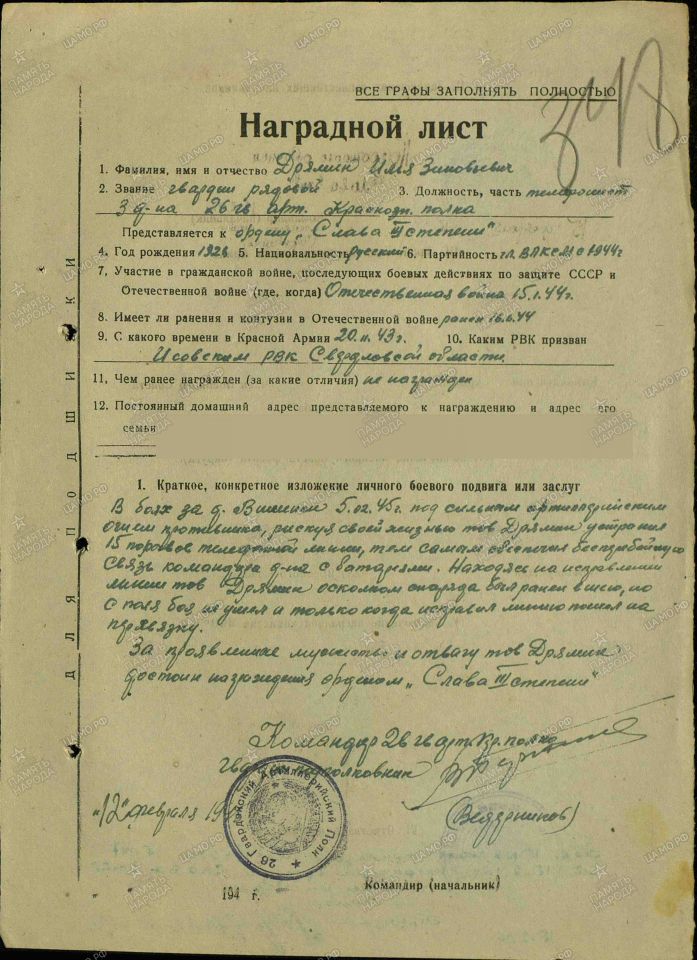 ВСЕ ГРАФЫ ЗАПОЛНЯТЬ ПОЛНОСТЬЮ
Наградной лист
1. Фамилия, имя и отчество Дрямин Имя Зиновьевич
2. Звание гвардии рядовой 3. Должность, часть телефонист
3 д-на 26 гв арт. Краснозн. полка
Представляется к ордену „Слава III степени"
4. Год рождения 1926 5. Национальность русский 6. Партийность чл. ВЛКСМ с 1944г
7. Участие в гражданской войне, последующих боевых действиях по защите СССР и
Отечественной войне (где, когда) Отечественная война 15.1.44г.
8. Имеет ли ранения и контузии в Отечественной войне ранен 16.6.44
9. С какого времени в Красной Армии 20.11.43г. 10. Каким РВК призван
Исовским РВК Свердловской области
11. Чем ранее награжден (за какие отличия) не награжден
12. Постоянный домашний адрес представляемого к награждению и адрес его
семьи
I. Краткое, конкретное изложение личного боевого подвига или заслуг
В боях за д. 5.02.45г. под сильным артиллерийским
огнем противника, рискуя своей жизнью тов Дрямин устранил
15 порывов телефонной линии, тем самым обеспечил бесперебойную
связь командира д-на с батареями. Находясь на исправлении
линии тов Дрямин осколком снаряда был ранен в шею, но
с поля боя не ушел и только когда исправил линию пошел на
перевязку.
За проявленные мужество и отвагу тов Дрямин
достоин награждения орденом „Слава III степени"
Командир 26 гв арт. Кр. полка
гвардии подполковник
(Ведерников)
„12" февраля 19
26 Гвардейский Артиллерийский Полк
194 г.
Командир (начальник)
ДЛЯ ПОДШИВКИ
ПАМЯТЬ НАРОДА
ЦАМО.РФ